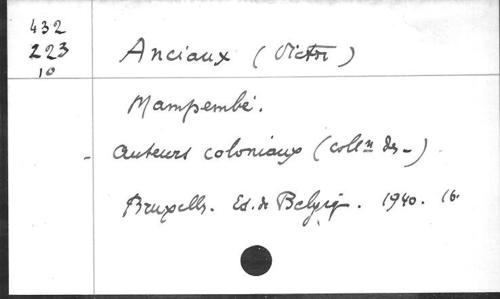 432
223
10
Anciaux (Victor)
Mampembé.
- Auteurs coloniaux (coll.n des -)
Bruxelles. Ed. de Belgiq. 1940. 16.